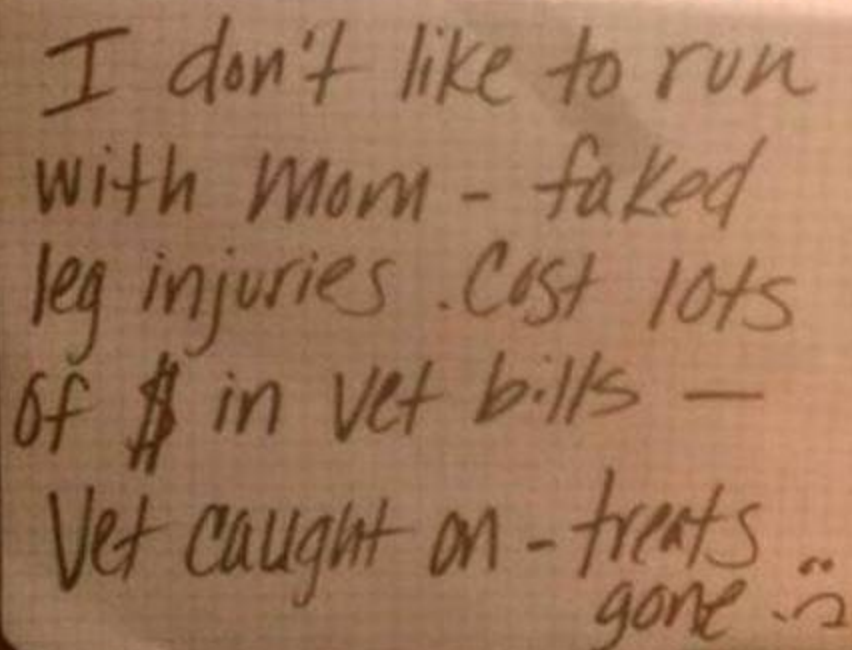 I don't like to run
with Mom - faked
leg injuries. Cost lots
of $ in vet bills —
Vet caught on - treats
gone :(